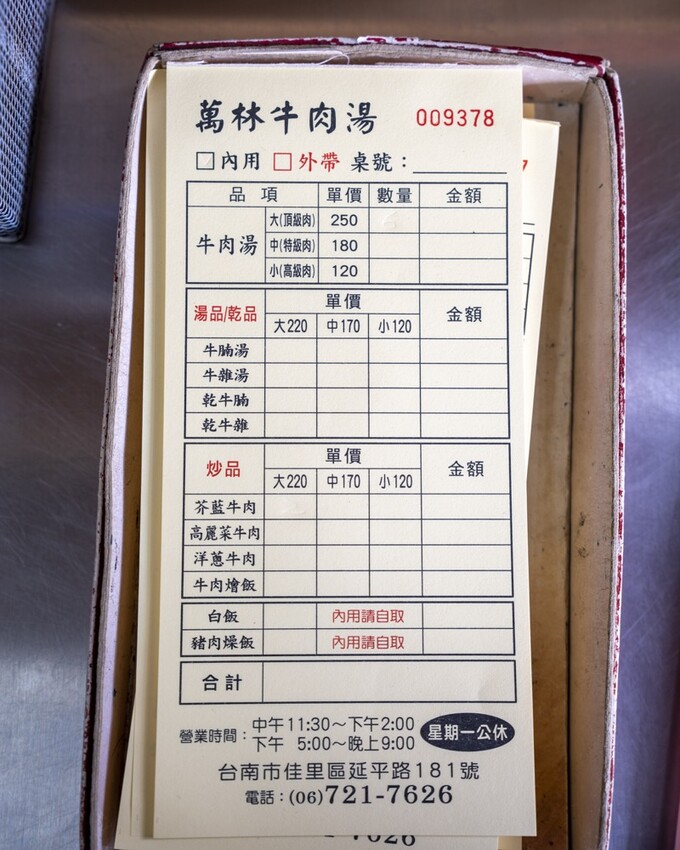 萬林牛肉湯 009378
□內用 □外帶 桌號：
品項 單價 數量 金額
牛肉湯 大(頂級肉) 250
中(特級肉) 180
小(高級肉) 120
湯品/乾品 單價 金額
大220 中170 小120
牛腩湯
牛雜湯
乾牛腩
乾牛雜
炒品 單價 金額
大220 中170 小120
芥藍牛肉
高麗菜牛肉
洋蔥牛肉
牛肉燴飯
白飯 內用請自取
豬肉燥飯 內用請自取
合計
營業時間：中午11:30～下午2:00
下午 5:00～晚上9:00
星期一公休
台南市佳里區延平路181號
電話：(06)721-7626